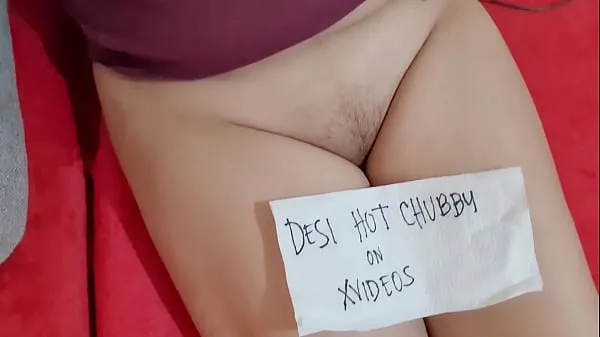 DESI HOT CHUBBY
ON
XVIDEOS